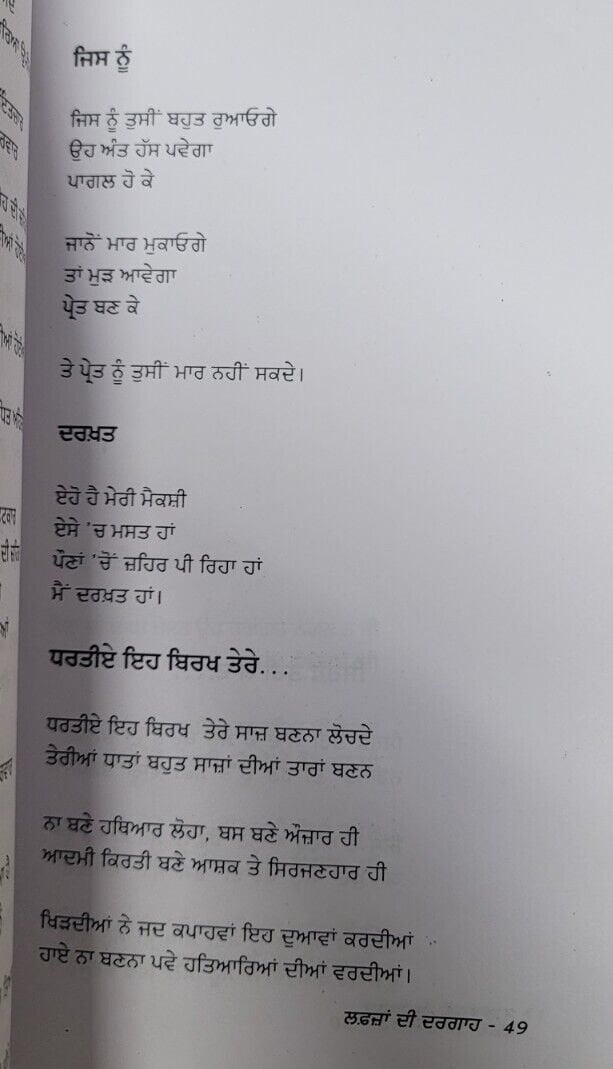 ਜਿਸ ਨੂੰ
ਜਿਸ ਨੂੰ ਤੁਸੀਂ ਬਹੁਤ ਰੁਆਓਗੇ
ਉਹ ਅੰਤ ਹੱਸ ਪਵੇਗਾ
ਪਾਗਲ ਹੋ ਕੇ
ਜਾਨੋਂ ਮਾਰ ਮੁਕਾਓਗੇ
ਤਾਂ ਮੁੜ ਆਵੇਗਾ
ਪ੍ਰੇਤ ਬਣ ਕੇ
ਤੇ ਪ੍ਰੇਤ ਨੂੰ ਤੁਸੀਂ ਮਾਰ ਨਹੀਂ ਸਕਦੇ।
ਦਰਖ਼ਤ
ਏਹੋ ਹੈ ਮੇਰੀ ਮੈਕਸ਼ੀ
ਏਸੇ 'ਚ ਮਸਤ ਹਾਂ
ਪੌਣਾਂ 'ਚੋਂ ਜ਼ਹਿਰ ਪੀ ਰਿਹਾ ਹਾਂ
ਮੈਂ ਦਰਖ਼ਤ ਹਾਂ।
ਧਰਤੀਏ ਇਹ ਬਿਰਖ ਤੇਰੇ...
ਧਰਤੀਏ ਇਹ ਬਿਰਖ ਤੇਰੇ ਸਾਜ਼ ਬਣਨਾ ਲੋਚਦੇ
ਤੇਰੀਆਂ ਧਾਤਾਂ ਬਹੁਤ ਸਾਜ਼ਾਂ ਦੀਆਂ ਤਾਰਾਂ ਬਣਨ
ਨਾ ਬਣੇ ਹਥਿਆਰ ਲੋਹਾ, ਬਸ ਬਣੇ ਔਜ਼ਾਰ ਹੀ
ਆਦਮੀ ਕਿਰਤੀ ਬਣੇ ਆਸ਼ਕ ਤੇ ਸਿਰਜਣਹਾਰ ਹੀ
ਖਿੜਦੀਆਂ ਨੇ ਜਦ ਕਪਾਹਵਾਂ ਇਹ ਦੁਆਵਾਂ ਕਰਦੀਆਂ
ਹਾਏ ਨਾ ਬਣਨਾ ਪਵੇ ਹਤਿਆਰਿਆਂ ਦੀਆਂ ਵਰਦੀਆਂ।
ਲਫ਼ਜ਼ਾਂ ਦੀ ਦਰਗਾਹ - 49